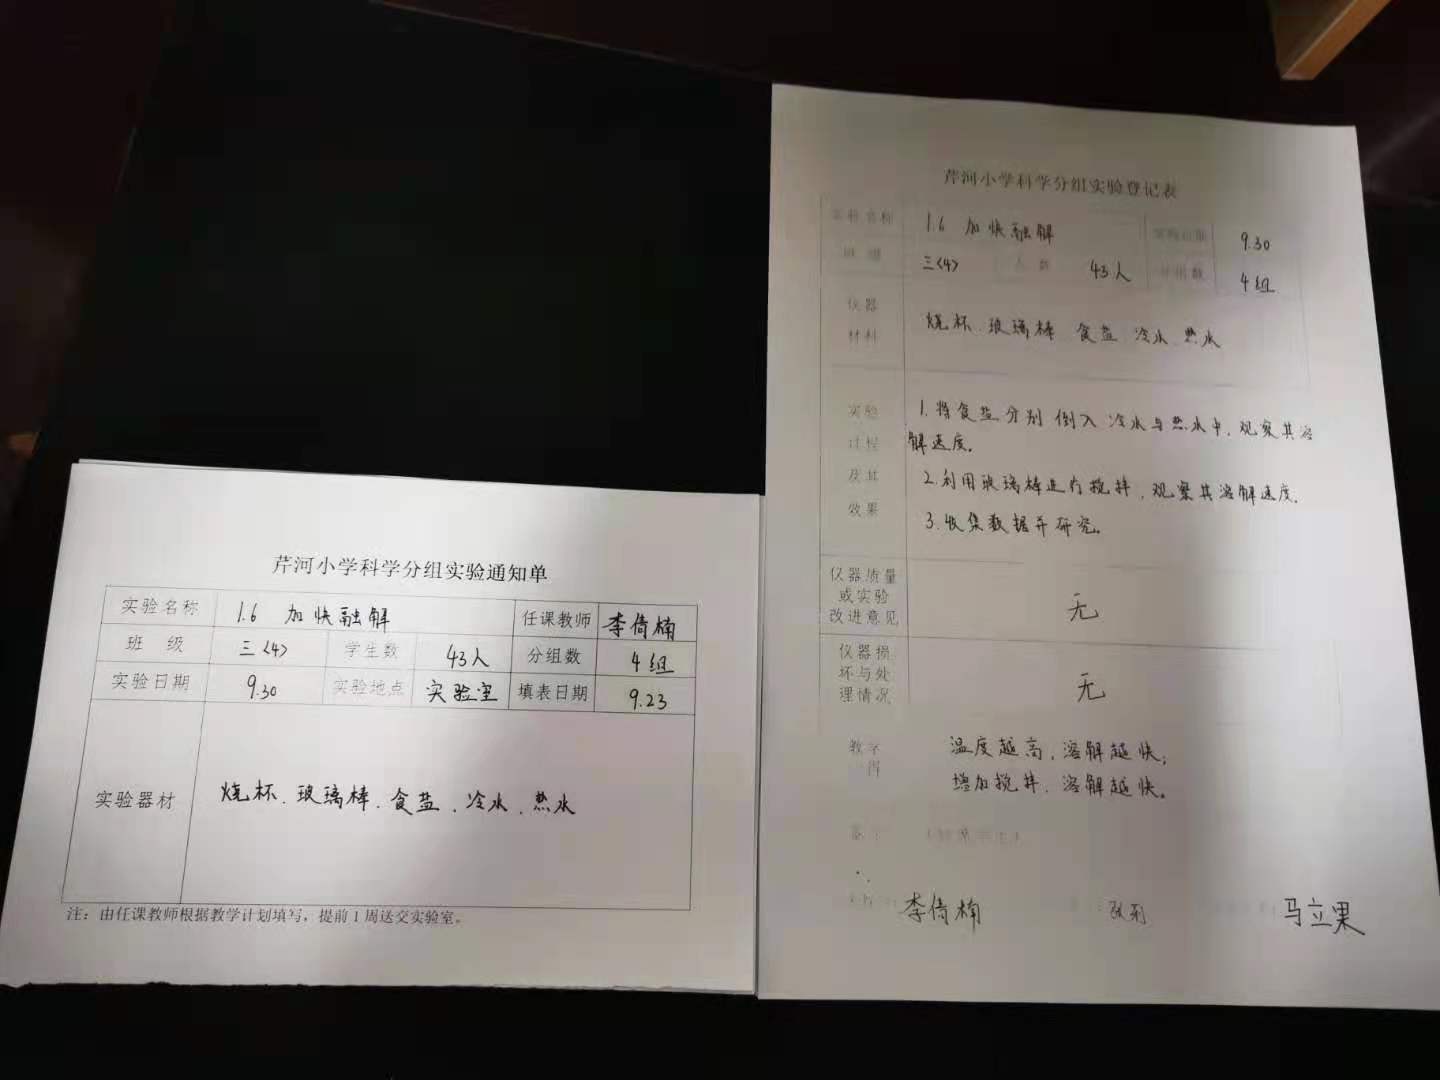 芹河小学科学分组实验通知单
实验名称 1.6 加快融解 任课教师 李倚楠
班 级 三<4> 学生数 43人 分组数 4组
实验日期 9.30 实验地点 实验室 填表日期 9.23
实验器材 烧杯、玻璃棒、食盐、冷水、热水
注：由任课教师根据教学计划填写，提前1周送交实验室。
芹河小学科学分组实验登记表
实验名称 1.6 加快融解 实验日期 9.30
班 级 三<4> 人 数 43人 分组数 4组
仪器
材料
烧杯、玻璃棒 食盐 冷水、热水
实验
过程
及其
效果
1.将食盐分别倒入冷水与热水中，观察其溶
解速度。
2.利用玻璃棒进行搅拌，观察其溶解速度.
3.收集数据并研究。
仪器质量
或实验
改进意见
无
仪器损
坏与处
理情况
无
教学
得
温度越高，溶解越快；
增加搅拌，溶解越快。
李倚楠 马立果